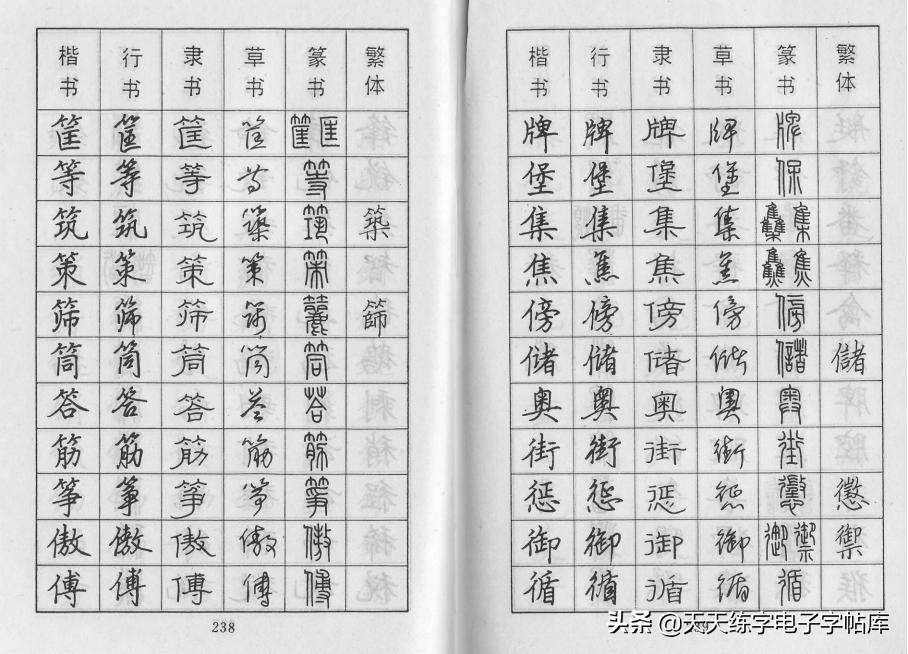 楷书 行书 隶书 草书 篆书 繁体
筐 筐 筐 筐 筐 匡
等 等 等 等 等
筑 筑 筑 築 筑 築
策 策 策 策 策
筛 筛 筛 篩 篩
筒 筒 筒 筒 筒
答 答 答 答 荅
筋 筋 筋 筋 筋
筝 筝 筝 筝 筝
傲 傲 傲 傲 傲
傅 傅 傅 傅 傅
238
楷书 行书 隶书 草书 篆书 繁体
牌 牌 牌 牌 牌
堡 堡 堡 堡 保
集 集 集 集 雧 集
焦 焦 焦 焦 焦
傍 傍 傍 傍 傍
储 储 储 储 儲 儲
奥 奥 奥 奥 奥
街 街 街 街 街
惩 惩 惩 惩 懲 懲
御 御 御 御 御 禦 禦
循 循 循 循 循
头条 @天天练字电子字帖库